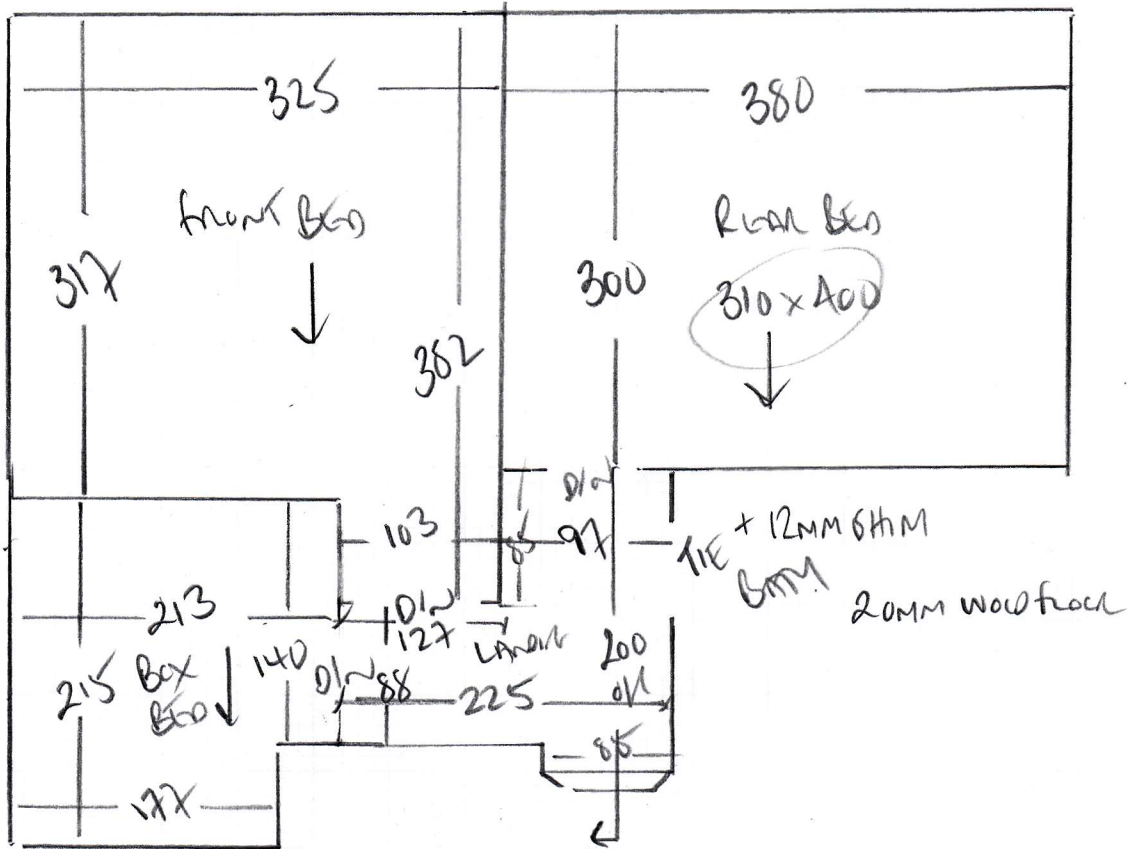 325
380
FRONT BED
REAR BED
317
300
310 x 400
382
DIN
103
85
97
TIE
+ 12MM SHIM
BATH
20MM WOOD FLOOR
213
DIN
127
LANDING
200
215
BOX
BED
140
DIN
88
225
85
177